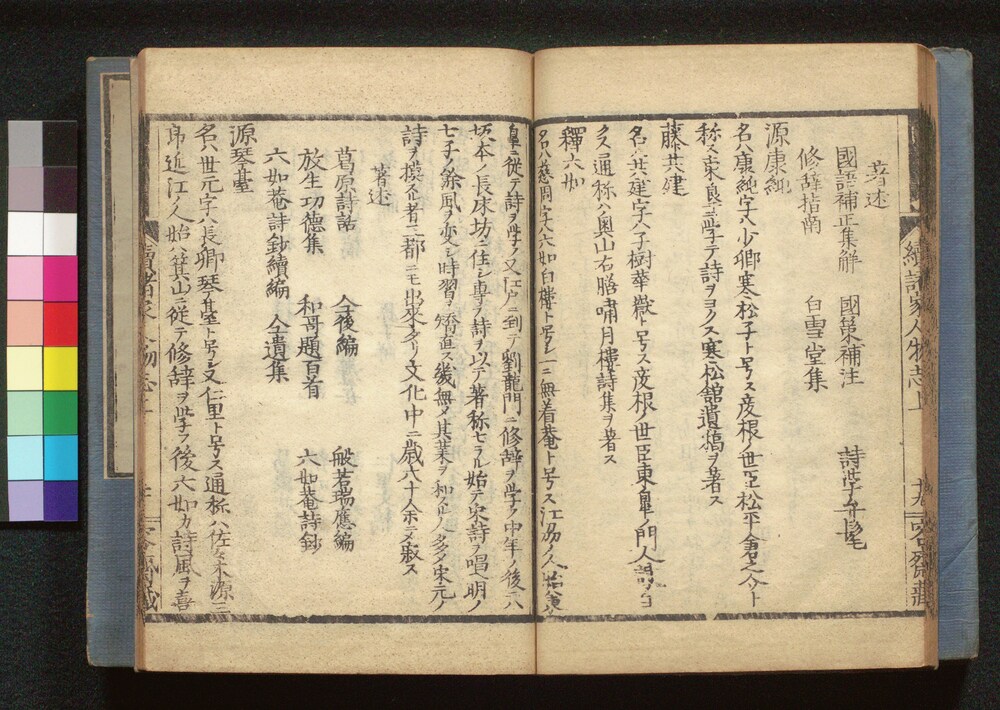 著述
國語補正集解　國策補注　詩学弁髦
修辞指南　白雪堂集
源康純
名ハ康純字ハ少卿寒松子ト号ス彦根ノ世臣松平倉之介ト
称ス東皐ニ学テ詩ヲヨクス寒松舘遺稿ヲ著ス
藤共建
名ハ共建字ハ子樹華嶽ト号ス彦根ノ世臣東皐ノ門人詩ヲヨ
クス通称ハ奥山右膳嘯月樓詩集ヲ著ス
釋六如
名ハ慈周字ハ六如白樓ト号シ無着菴ト号ス江州ノ人始東
皐ニ從テ詩ヲ学ノ又江戸ニ到テ劉龍門ニ修辞ヲ学フ中年ノ後ハ
坂本ノ長床坊ニ住シ専ラ詩ヲ以テ著称セラル始テ宋詩ヲ唱ヘ明ノ
七子ノ餘風ヲ変シ時習ヲ矯直ス幾無メ其業ヲ和スルノ多ク宋元ノ
詩ヲ撲ル者三都ニモ出來タリ文化中ニ歳六十余ニメ寂ス
著述
葛原詩話　仝後編　般若瑞應編
放生功德集　和哥題百首　六如菴詩鈔
六如菴詩鈔續編　仝遺集
源琴臺
名ハ世元字ハ長卿琴臺ト号シ又仁里ト号ス通称ハ佐々木源三
郎近江ノ人始ハ箕山ニ從テ修辞ヲ学フ後六如カ詩風ヲ喜
續諸家人物志上